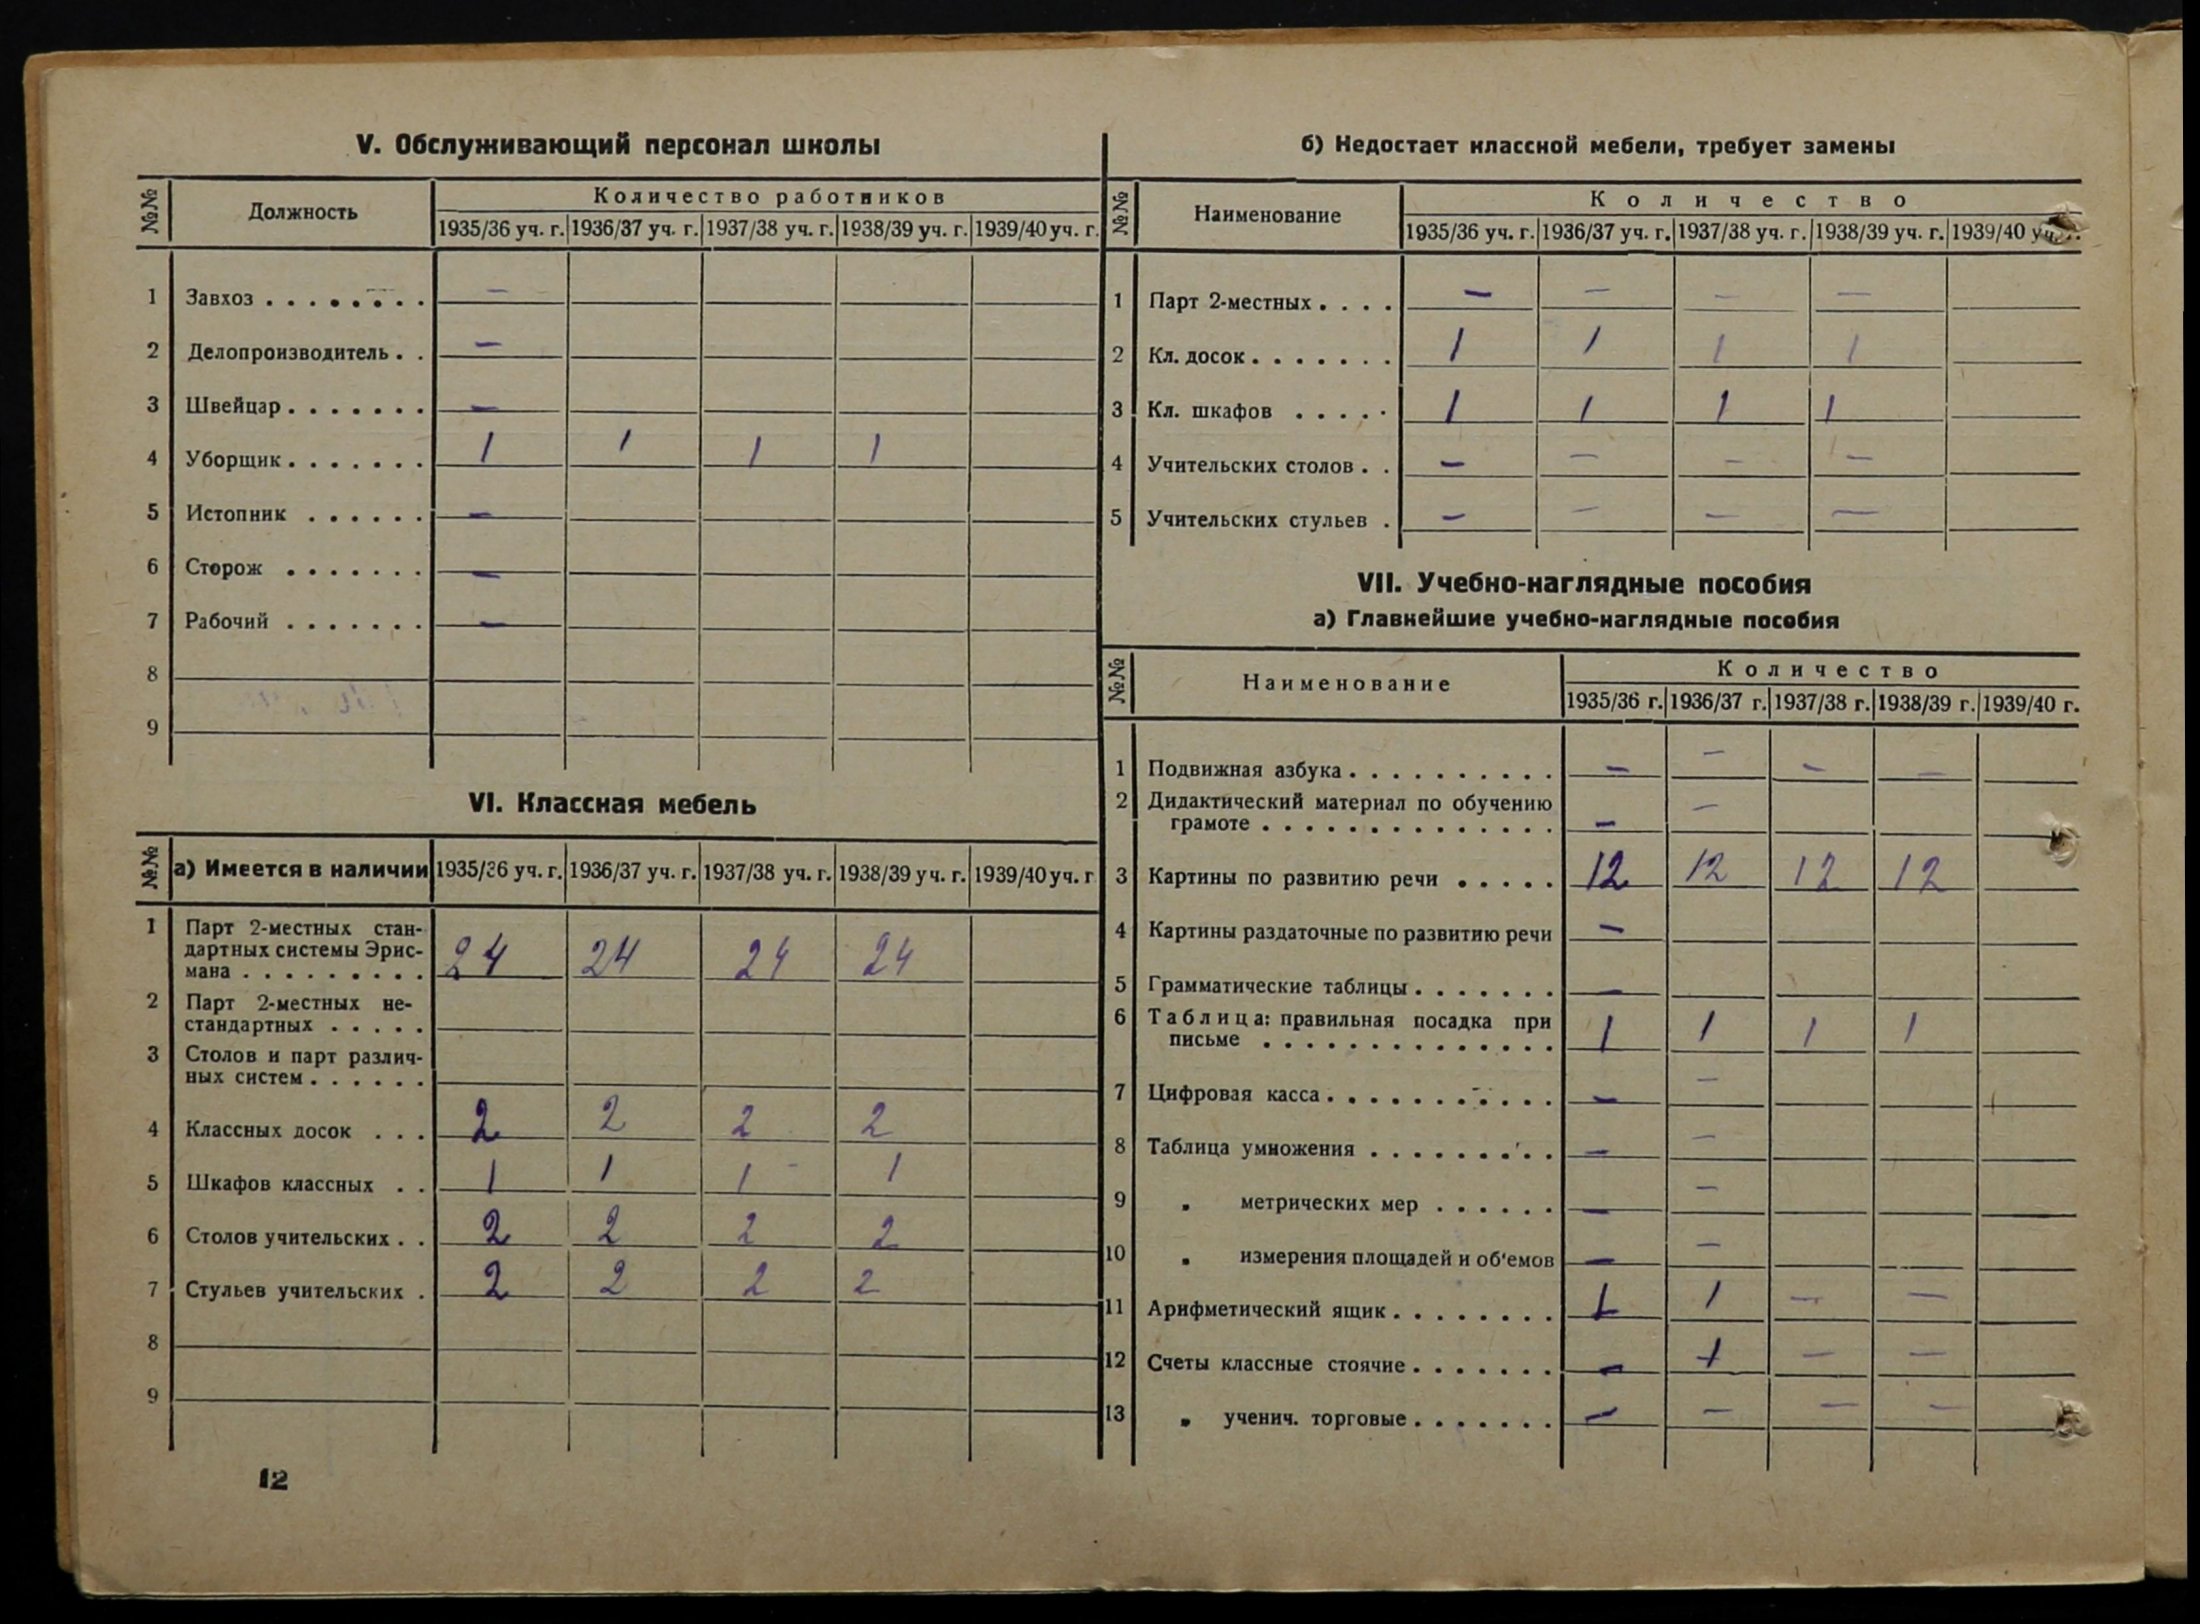 V. Обслуживающий персонал школы
№№ Должность Количество работников
1935/36 уч. г. 1936/37 уч. г. 1937/38 уч. г. 1938/39 уч. г. 1939/40 уч. г.
1 Завхоз . . . . . . . . —
2 Делопроизводитель . . —
3 Швейцар . . . . . . . —
4 Уборщик . . . . . . . 1 1 1 1
5 Истопник . . . . . . —
6 Сторож . . . . . . . —
7 Рабочий . . . . . . . —
8
9
VI. Классная мебель
№№ а) Имеется в наличии 1935/36 уч. г. 1936/37 уч. г. 1937/38 уч. г. 1938/39 уч. г. 1939/40 уч. г
1 Парт 2-местных стан-
дартных системы Эрис-
мана . . . . . . . . . 24 24 24 24
2 Парт 2-местных не-
стандартных . . . . .
3 Столов и парт различ-
ных систем . . . . . .
4 Классных досок . . . 2 2 2 2
5 Шкафов классных . . 1 1 1 1
6 Столов учительских . . 2 2 2 2
7 Стульев учительских . 2 2 2 2
8
9
12
б) Недостает классной мебели, требует замены
№№ Наименование Количество
1935/36 уч. г. 1936/37 уч. г. 1937/38 уч. г. 1938/39 уч. г. 1939/40
1 Парт 2-местных . . . . — — — —
2 Кл. досок . . . . . . . 1 1 1 1
3 Кл. шкафов . . . . . 1 1 1 1
4 Учительских столов . . — — — —
5 Учительских стульев . — — — —
VII. Учебно-наглядные пособия
а) Главнейшие учебно-наглядные пособия
№№ Наименование Количество
1935/36 г. 1936/37 г. 1937/38 г. 1938/39 г. 1939/40 г.
1 Подвижная азбука . . . . . . . . . . — — — —
2 Дидактический материал по обучению
грамоте . . . . . . . . . . . . . . — —
3 Картины по развитию речи . . . . . 12 12 12 12
4 Картины раздаточные по развитию речи —
5 Грамматические таблицы . . . . . . . —
6 Таблица: правильная посадка при
письме . . . . . . . . . . . . . . 1 1 1 1
7 Цифровая касса . . . . . . . . . . . — —
8 Таблица умножения . . . . . . . . . — —
9 „ метрических мер . . . . . . — —
10 „ измерения площадей и об'емов — —
11 Арифметический ящик . . . . . . . . 1 1 — —
12 Счеты классные стоячие . . . . . . . — 1 — —
13 „ ученич. торговые . . . . . . . — — — —